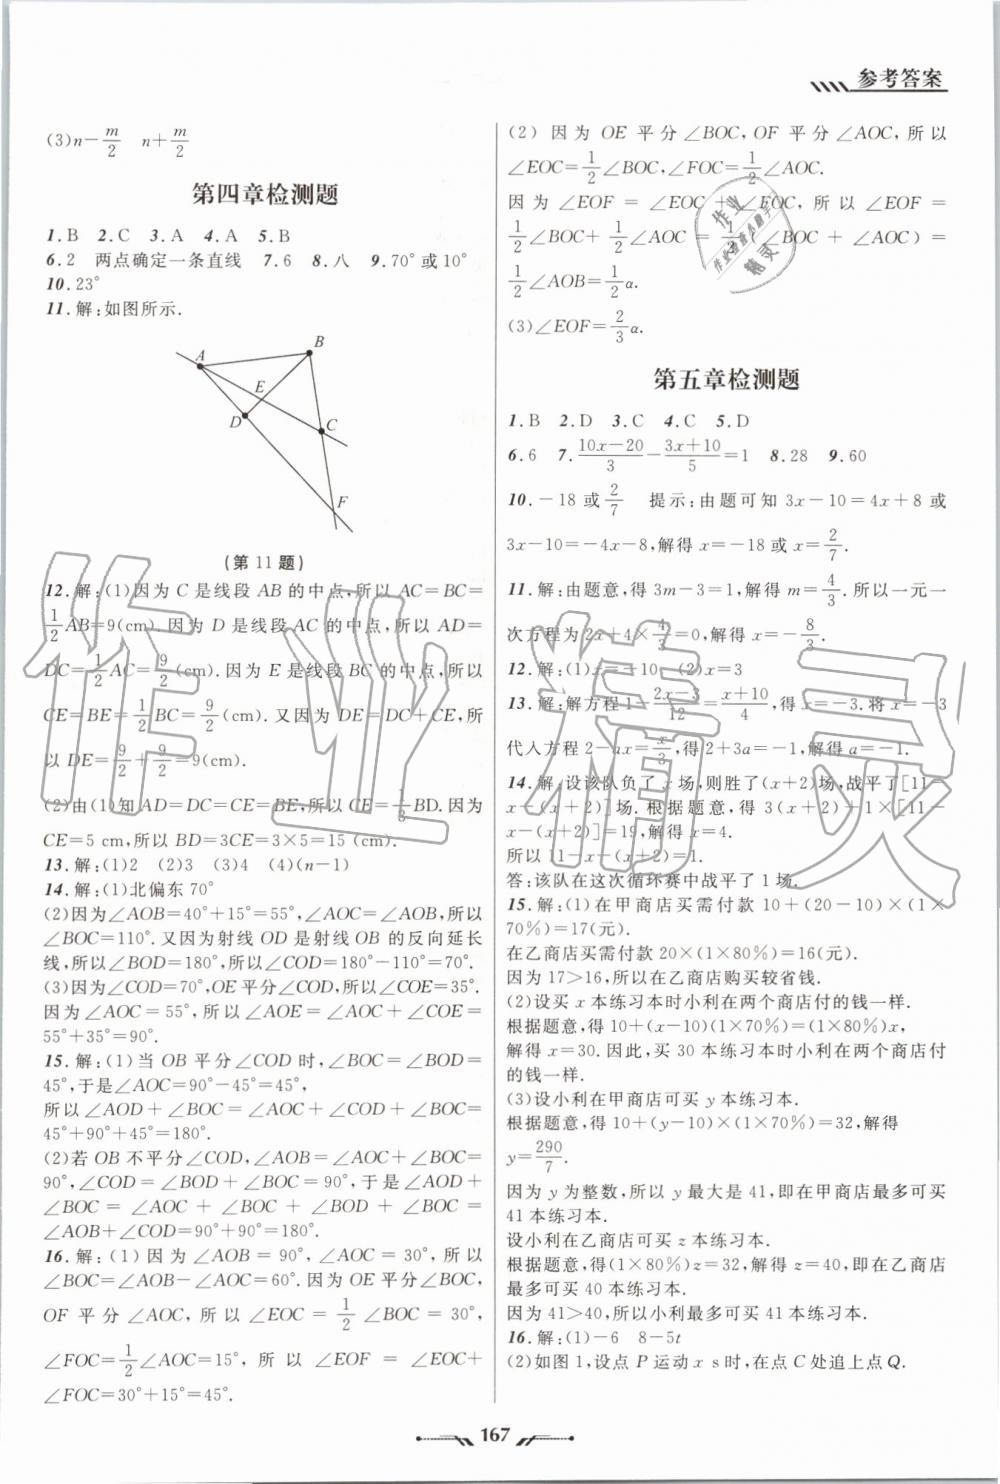 参考答案
(3)n-m/2 n+m/2
第四章检测题
1.B 2.C 3.A 4.A 5.B
6.2 两点确定一条直线 7.6 8.八 9.70°或10°
10.23°
11.解:如图所示.
A
B
E
D
C
F
(第11题)
12.解:(1)因为C是线段AB的中点,所以AC=BC=
1/2AB=9(cm).因为D是线段AC的中点,所以AD=
DC=1/2AC=9/2(cm).因为E是线段BC的中点,所以
CE=BE=1/2BC=9/2(cm).又因为DE=DC+CE,所
以DE=9/2+9/2=9(cm).
(2)由(1)知AD=DC=CE=BE,所以CE=1/3BD.因为
CE=5 cm,所以BD=3CE=3×5=15(cm).
13.解:(1)2 (2)3 (3)4 (4)(n-1)
14.解:(1)北偏东70°
(2)因为∠AOB=40°+15°=55°,∠AOC=∠AOB,所以
∠BOC=110°.又因为射线OD是射线OB的反向延长
线,所以∠BOD=180°,所以∠COD=180°-110°=70°.
(3)因为∠COD=70°,OE平分∠COD,所以∠COE=35°.
因为∠AOC=55°,所以∠AOE=∠AOC+∠COE=
55°+35°=90°.
15.解:(1)当OB平分∠COD时,∠BOC=∠BOD=
45°,于是∠AOC=90°-45°=45°,
所以∠AOD+∠BOC=∠AOC+∠COD+∠BOC=
45°+90°+45°=180°.
(2)若OB不平分∠COD,∠AOB=∠AOC+∠BOC=
90°,∠COD=∠BOD+∠BOC=90°,于是∠AOD+
∠BOC=∠AOC+∠BOC+∠BOD+∠BOC=
∠AOB+∠COD=90°+90°=180°.
16.解:(1)因为∠AOB=90°,∠AOC=30°,所以
∠BOC=∠AOB-∠AOC=60°.因为OE平分∠BOC,
OF平分∠AOC,所以∠EOC=1/2∠BOC=30°,
∠FOC=1/2∠AOC=15°,所以∠EOF=∠EOC+
∠FOC=30°+15°=45°.
(2)因为OE平分∠BOC,OF平分∠AOC,所以
∠EOC=1/2∠BOC,∠FOC=1/2∠AOC.
因为∠EOF=∠EOC+∠FOC,所以∠EOF=
1/2∠BOC+1/2∠AOC=1/2(∠BOC+∠AOC)=
1/2∠AOB=1/2α.
(3)∠EOF=2/3α.
第五章检测题
1.B 2.D 3.C 4.C 5.D
6.6 7.(10x-20)/3-(3x+10)/5=1 8.28 9.60
10.-18或2/7 提示:由题可知3x-10=4x+8或
3x-10=-4x-8,解得x=-18或x=2/7.
11.解:由题意,得3m-3=1,解得m=4/3.所以一元一
次方程为2x+4×4/3=0,解得x=-8/3.
12.解:(1)x=-10 (2)x=3
13.解:解方程1-(2x-3)/12=(x+10)/4,得x=-3.将x=-3
代入方程2-ax=x/3,得2+3a=-1,解得a=-1.
14.解:设该队负了x场,则胜了(x+2)场,战平了[11-
x-(x+2)]场.根据题意,得3(x+2)+1×[11-
x-(x+2)]=19,解得x=4.
所以11-x-(x+2)=1.
答:该队在这次循环赛中战平了1场.
15.解:(1)在甲商店买需付款10+(20-10)×(1×
70%)=17(元).
在乙商店买需付款20×(1×80%)=16(元).
因为17>16,所以在乙商店购买较省钱.
(2)设买x本练习本时小利在两个商店付的钱一样.
根据题意,得10+(x-10)(1×70%)=(1×80%)x,
解得x=30.因此,买30本练习本时小利在两个商店付
的钱一样.
(3)设小利在甲商店可买y本练习本.
根据题意,得10+(y-10)(1×70%)=32,解得
y=290/7.
因为y为整数,所以y最大是41,即在甲商店最多可买
41本练习本.
设小利在乙商店可买z本练习本.
根据题意,得(1×80%)z=32,解得z=40,即在乙商店
最多可买40本练习本.
因为41>40,所以小利最多可买41本练习本.
16.解:(1)-6 8-5t
(2)如图1,设点P运动x s时,在点C处追上点Q.
167
作业精灵